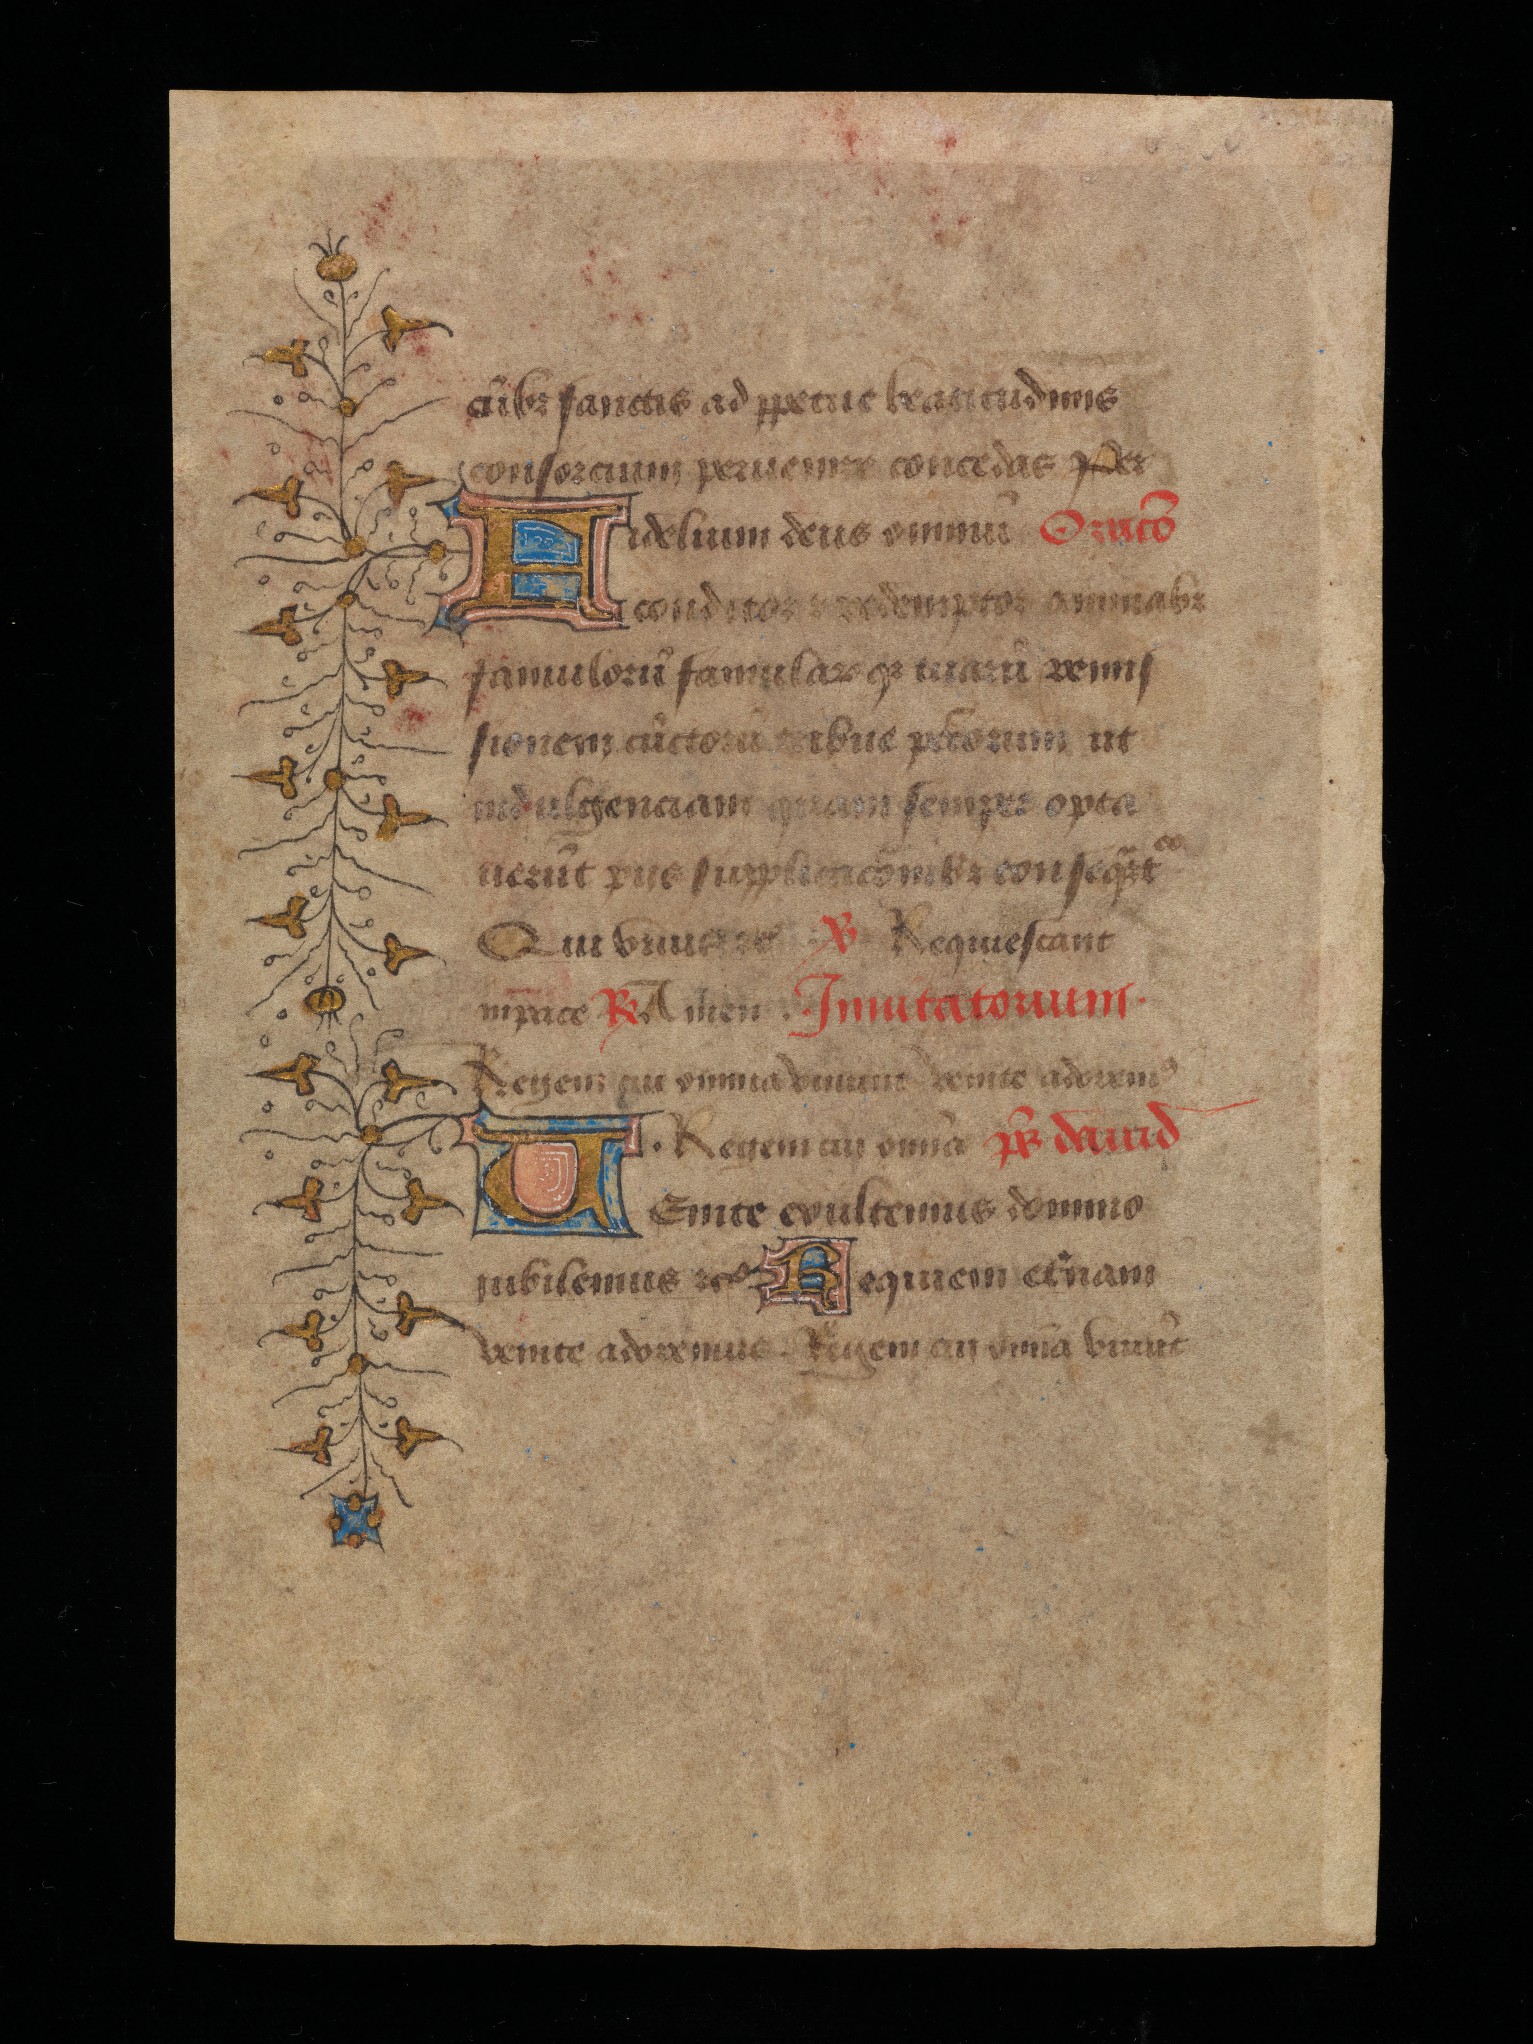 cu̅ibꝫ sanctis ad ꝑpetue beatitudinis
consorcium peruenire concedas Per
Fidelium deus omniu̅ Oracio̅
conditor ⁊ redemptor animabꝫ
famuloru̅ famularꝙꝫ tuaru̅ remis
sionem cu̅ctoru̅ tribue pc̅torum ut
indulgenciam quam semper opta
ueru̅t pijs supplicac̅o̅nibꝫ conseq̅ꝛt͛
Qui viuis ⁊c ℣ Requiescant
in pace ℟ Amen . Inuitatorium.
Regem cui omnia viuunt venite adoremꝰ
. Regem cui omn̅a ps̅ dauid
Venite exultemus domino
iubilemus ⁊c Requiem et̅nam
venite adoremus. Regem cui omn̅a viuu̅t